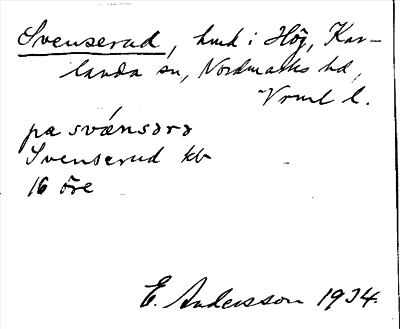 Svenserud, hmd i Hög, Kar-
landa sn, Nordmarks hd,
Vrml l.
pa svǽnsərə
Svenserud kb
16 öre
E. Andersson 1934.